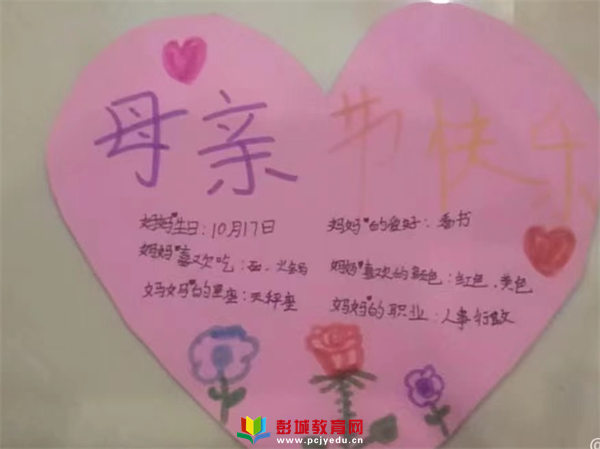 母亲节快乐
妈妈生日：10月17日
妈妈喜欢吃：面，火锅
妈妈的星座：天秤座
妈妈的爱好：看书
妈妈喜欢的颜色：红色，黄色
妈妈的职业：人事行政
彭城教育网
www.pcjyedu.cn